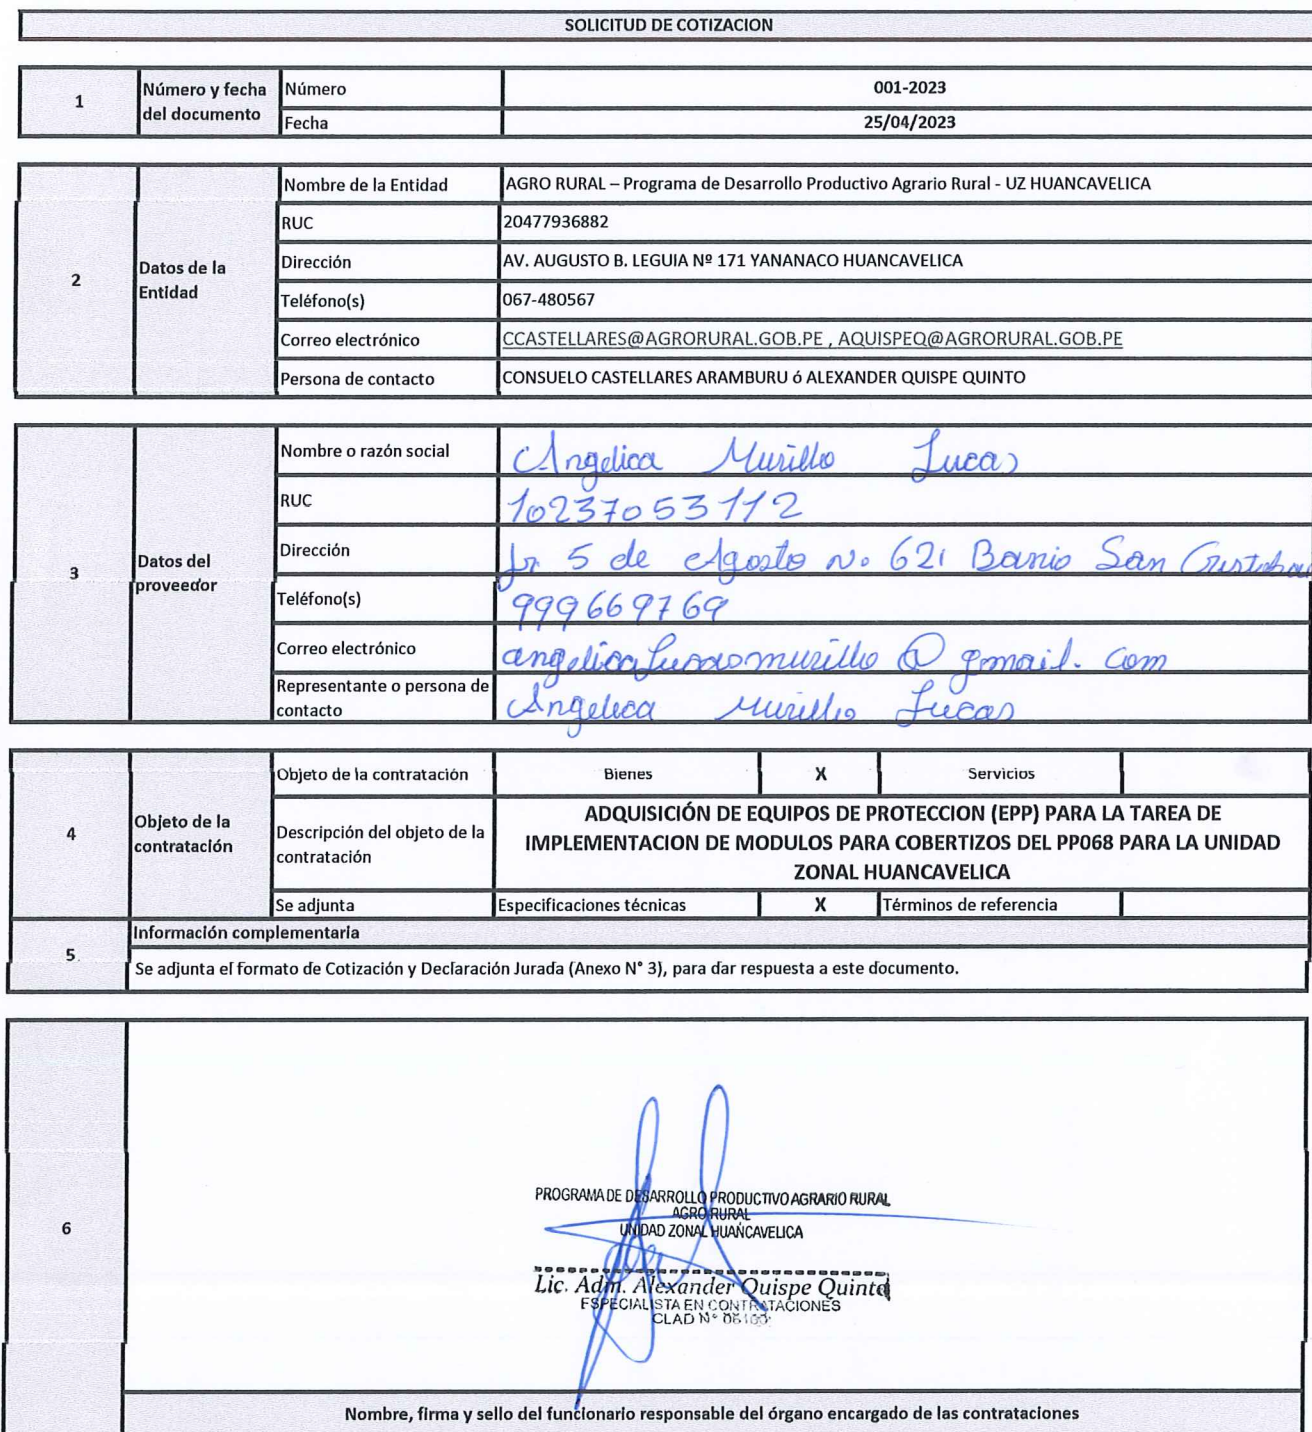 SOLICITUD DE COTIZACION
1
Número y fecha del documento
Número 001-2023
Fecha 25/04/2023
2
Datos de la Entidad
Nombre de la Entidad AGRO RURAL – Programa de Desarrollo Productivo Agrario Rural - UZ HUANCAVELICA
RUC 20477936882
Dirección AV. AUGUSTO B. LEGUIA Nº 171 YANANACO HUANCAVELICA
Teléfono(s) 067-480567
Correo electrónico CCASTELLARES@AGRORURAL.GOB.PE , AQUISPEQ@AGRORURAL.GOB.PE
Persona de contacto CONSUELO CASTELLARES ARAMBURU ó ALEXANDER QUISPE QUINTO
3
Datos del proveedor
Nombre o razón social Angelica Murillo Lucas
RUC 10237053112
Dirección Jr 5 de Agosto No 621 Barrio San Cristobal
Teléfono(s) 999669769
Correo electrónico murillo @ gmail. com
Representante o persona de contacto Angelica Murillo Lucas
4
Objeto de la contratación
Objeto de la contratación Bienes X Servicios
Descripción del objeto de la contratación
ADQUISICIÓN DE EQUIPOS DE PROTECCION (EPP) PARA LA TAREA DE
IMPLEMENTACION DE MODULOS PARA COBERTIZOS DEL PP068 PARA LA UNIDAD
ZONAL HUANCAVELICA
Se adjunta Especificaciones técnicas X Términos de referencia
5
Información complementaria
Se adjunta el formato de Cotización y Declaración Jurada (Anexo N° 3), para dar respuesta a este documento.
6
PROGRAMA DE DESARROLLO PRODUCTIVO AGRARIO RURAL
AGRO RURAL
UNIDAD ZONAL HUANCAVELICA
Lic. Adm. Alexander Quispe Quinto
ESPECIALISTA EN CONTRATACIONES
CLAD N°
Nombre, firma y sello del funcionario responsable del órgano encargado de las contrataciones